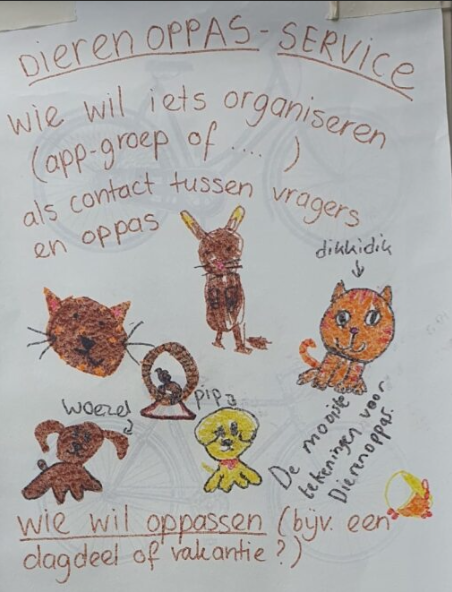 DIERENOPPAS-SERVICE
wie wil iets organiseren
(app-groep of .... )
als contact tussen vragers
en oppas
dikkidik
woezel
pip
De mooiste
tekeningen voor
Dierenoppas.
wie wil oppassen (bijv. een
dagdeel of vakantie?)